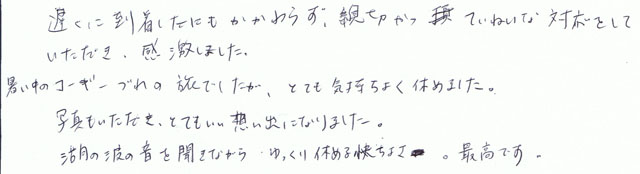 遅くに到着したにもかかわらず、親切かつていねいな対応をして
いただき、感激しました。
暑い中のコーギーづれの旅でしたが、とても気持ちよく休めました。
写真もいただき、とてもいい想い出になりました。
湖の波の音を聞きながらゆっくり休める快ちよさ。最高です。